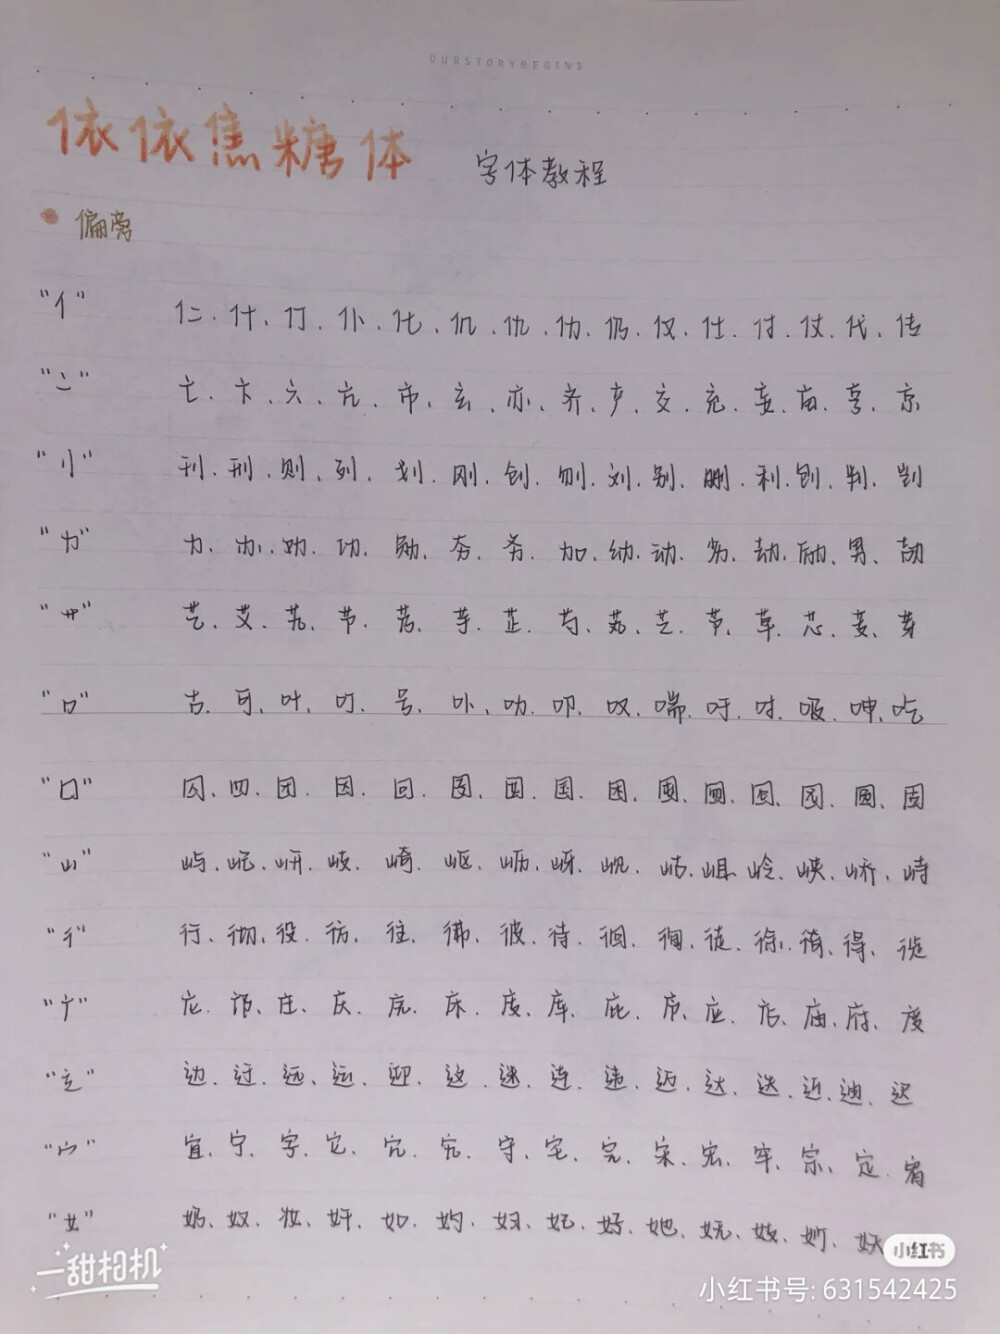 OURSTORYBEGINS
依依焦糖体 字体教程
偏旁
"亻" 仁、什、仃、仆、化、仉、仇、仂、仍、仅、仕、付、仗、代、传
"亠" 亡、卞、六、亢、市、玄、亦、齐、产、交、充、亩、享、京
"刂" 刊、刑、则、列、划、刚、创、刎、刘、别、删、利、刨、判、剀
"力" 力、办、劝、功、励、夯、务、加、幼、动、劣、劫、励、男、劼
"艹" 艺、艾、艽、节、芳、芋、芷、芍、芝、苇、草、芯、芰、芽
"口" 古、可、叶、叮、号、卟、叻、叩、叹、喘、吁、吋、吸、呻、吃
"口" 囚、四、团、因、回、国、困、园、固
"山" 屿、屹、岍、岐、崎、岖、岈、岘、岵、岨、岭、峡、峤、峙
"彳" 行、彻、役、彷、往、彿、彼、待、徊、徇、徒、徐、得、徙
"广" 庄、庆、床、库、庇、序、应、店、庙、府、度
"辶" 边、迂、远、运、迎、这、迷、连、违、迈、达、迭、近、迪、迟
"宀" 宜、宁、字、它、宂、守、宅、完、宋、宏、牢、宗、定、宥
"女" 奶、奴、妆、奸、如、妁、妇、妃、好、她、妩、妓、妙、妖
一甜相机
小红书
小红书号: 631542425